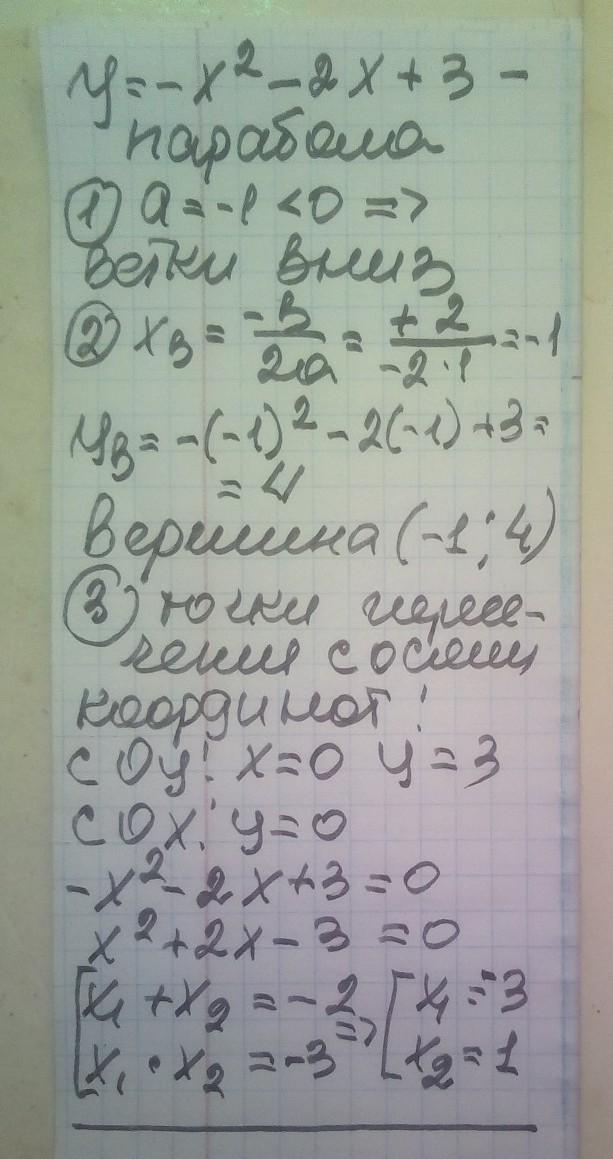 y = -x² - 2x + 3 -
парабола
① a = -1 < 0 =>
ветки вниз
② xв = -b/2a = +2/-2·1 = -1
yв = -(-1)² - 2(-1) + 3 =
= 4
Вершина (-1; 4)
③ точки пересе-
чения с осями
координат:
с Oy: x = 0 y = 3
с Ox: y = 0
-x² - 2x + 3 = 0
x² + 2x - 3 = 0
[x₁ + x₂ = -2 => [x₁ = -3
[x₁ · x₂ = -3 [x₂ = 1